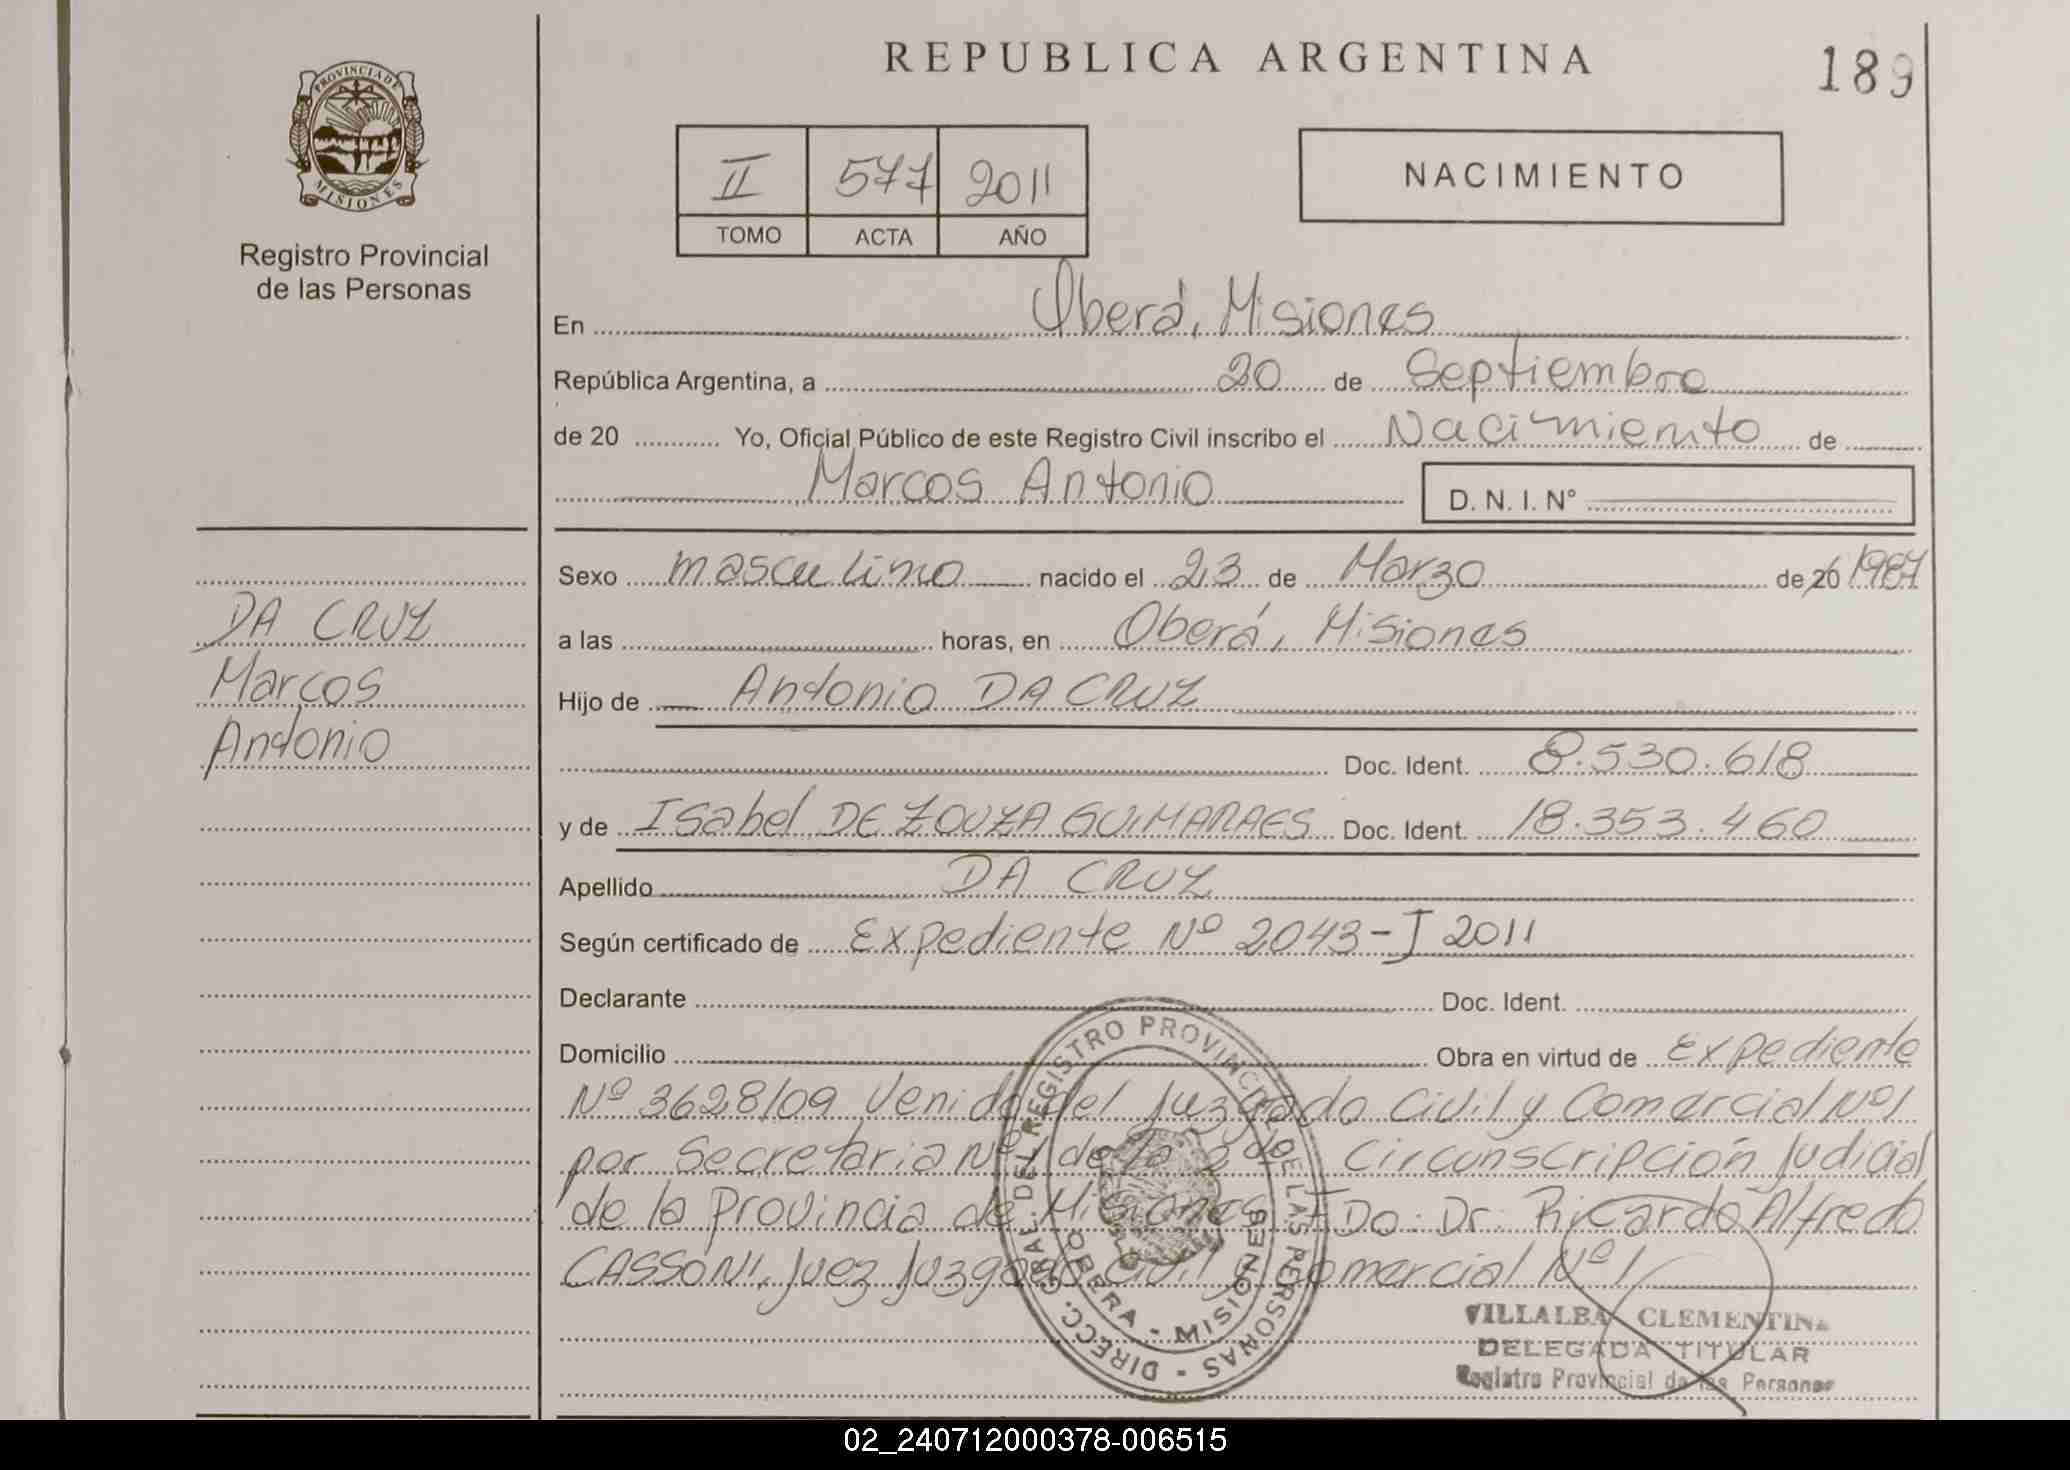 REPUBLICA ARGENTINA
189
PROVINCIA DE
MISIONES
Registro Provincial
de las Personas
II 577 2011
TOMO ACTA AÑO
NACIMIENTO
En Oberá, Misiones
República Argentina, a 20 de Septiembre
de 20 Yo, Oficial Público de este Registro Civil inscribo el Nacimiento de
Marcos Antonio D. N. I. N°
DA CRUZ
Marcos
Antonio
Sexo masculino nacido el 23 de Marzo de 20 1987
a las horas, en Oberá, Misiones
Hijo de Antonio DA CRUZ
Doc. Ident. 8.530.618
y de Isabel DE ZOUZA GUIMARAES Doc. Ident. 18.353.460
Apellido DA CRUZ
Según certificado de Expediente Nº 2043-J 2011
Declarante Doc. Ident.
Domicilio Obra en virtud de Expediente
Nº 3628/09 Venido del Juzgado Civil y Comercial Nº1
por Secretaria Nº 1 de la 2da Circunscripción Judicial
de la Provincia de Misiones FDo: Dr. Ricardo Alfredo
CASSONI, Juez Juzgado Civil y Comercial Nº 1
DIRECC. GRAL. DEL REGISTRO PROVINCIAL DE LAS PERSONAS -
OBERA - MISIONES
VILLALBA CLEMENTINA
DELEGADA TITULAR
Registro Provincial de las Personas
02_240712000378-006515